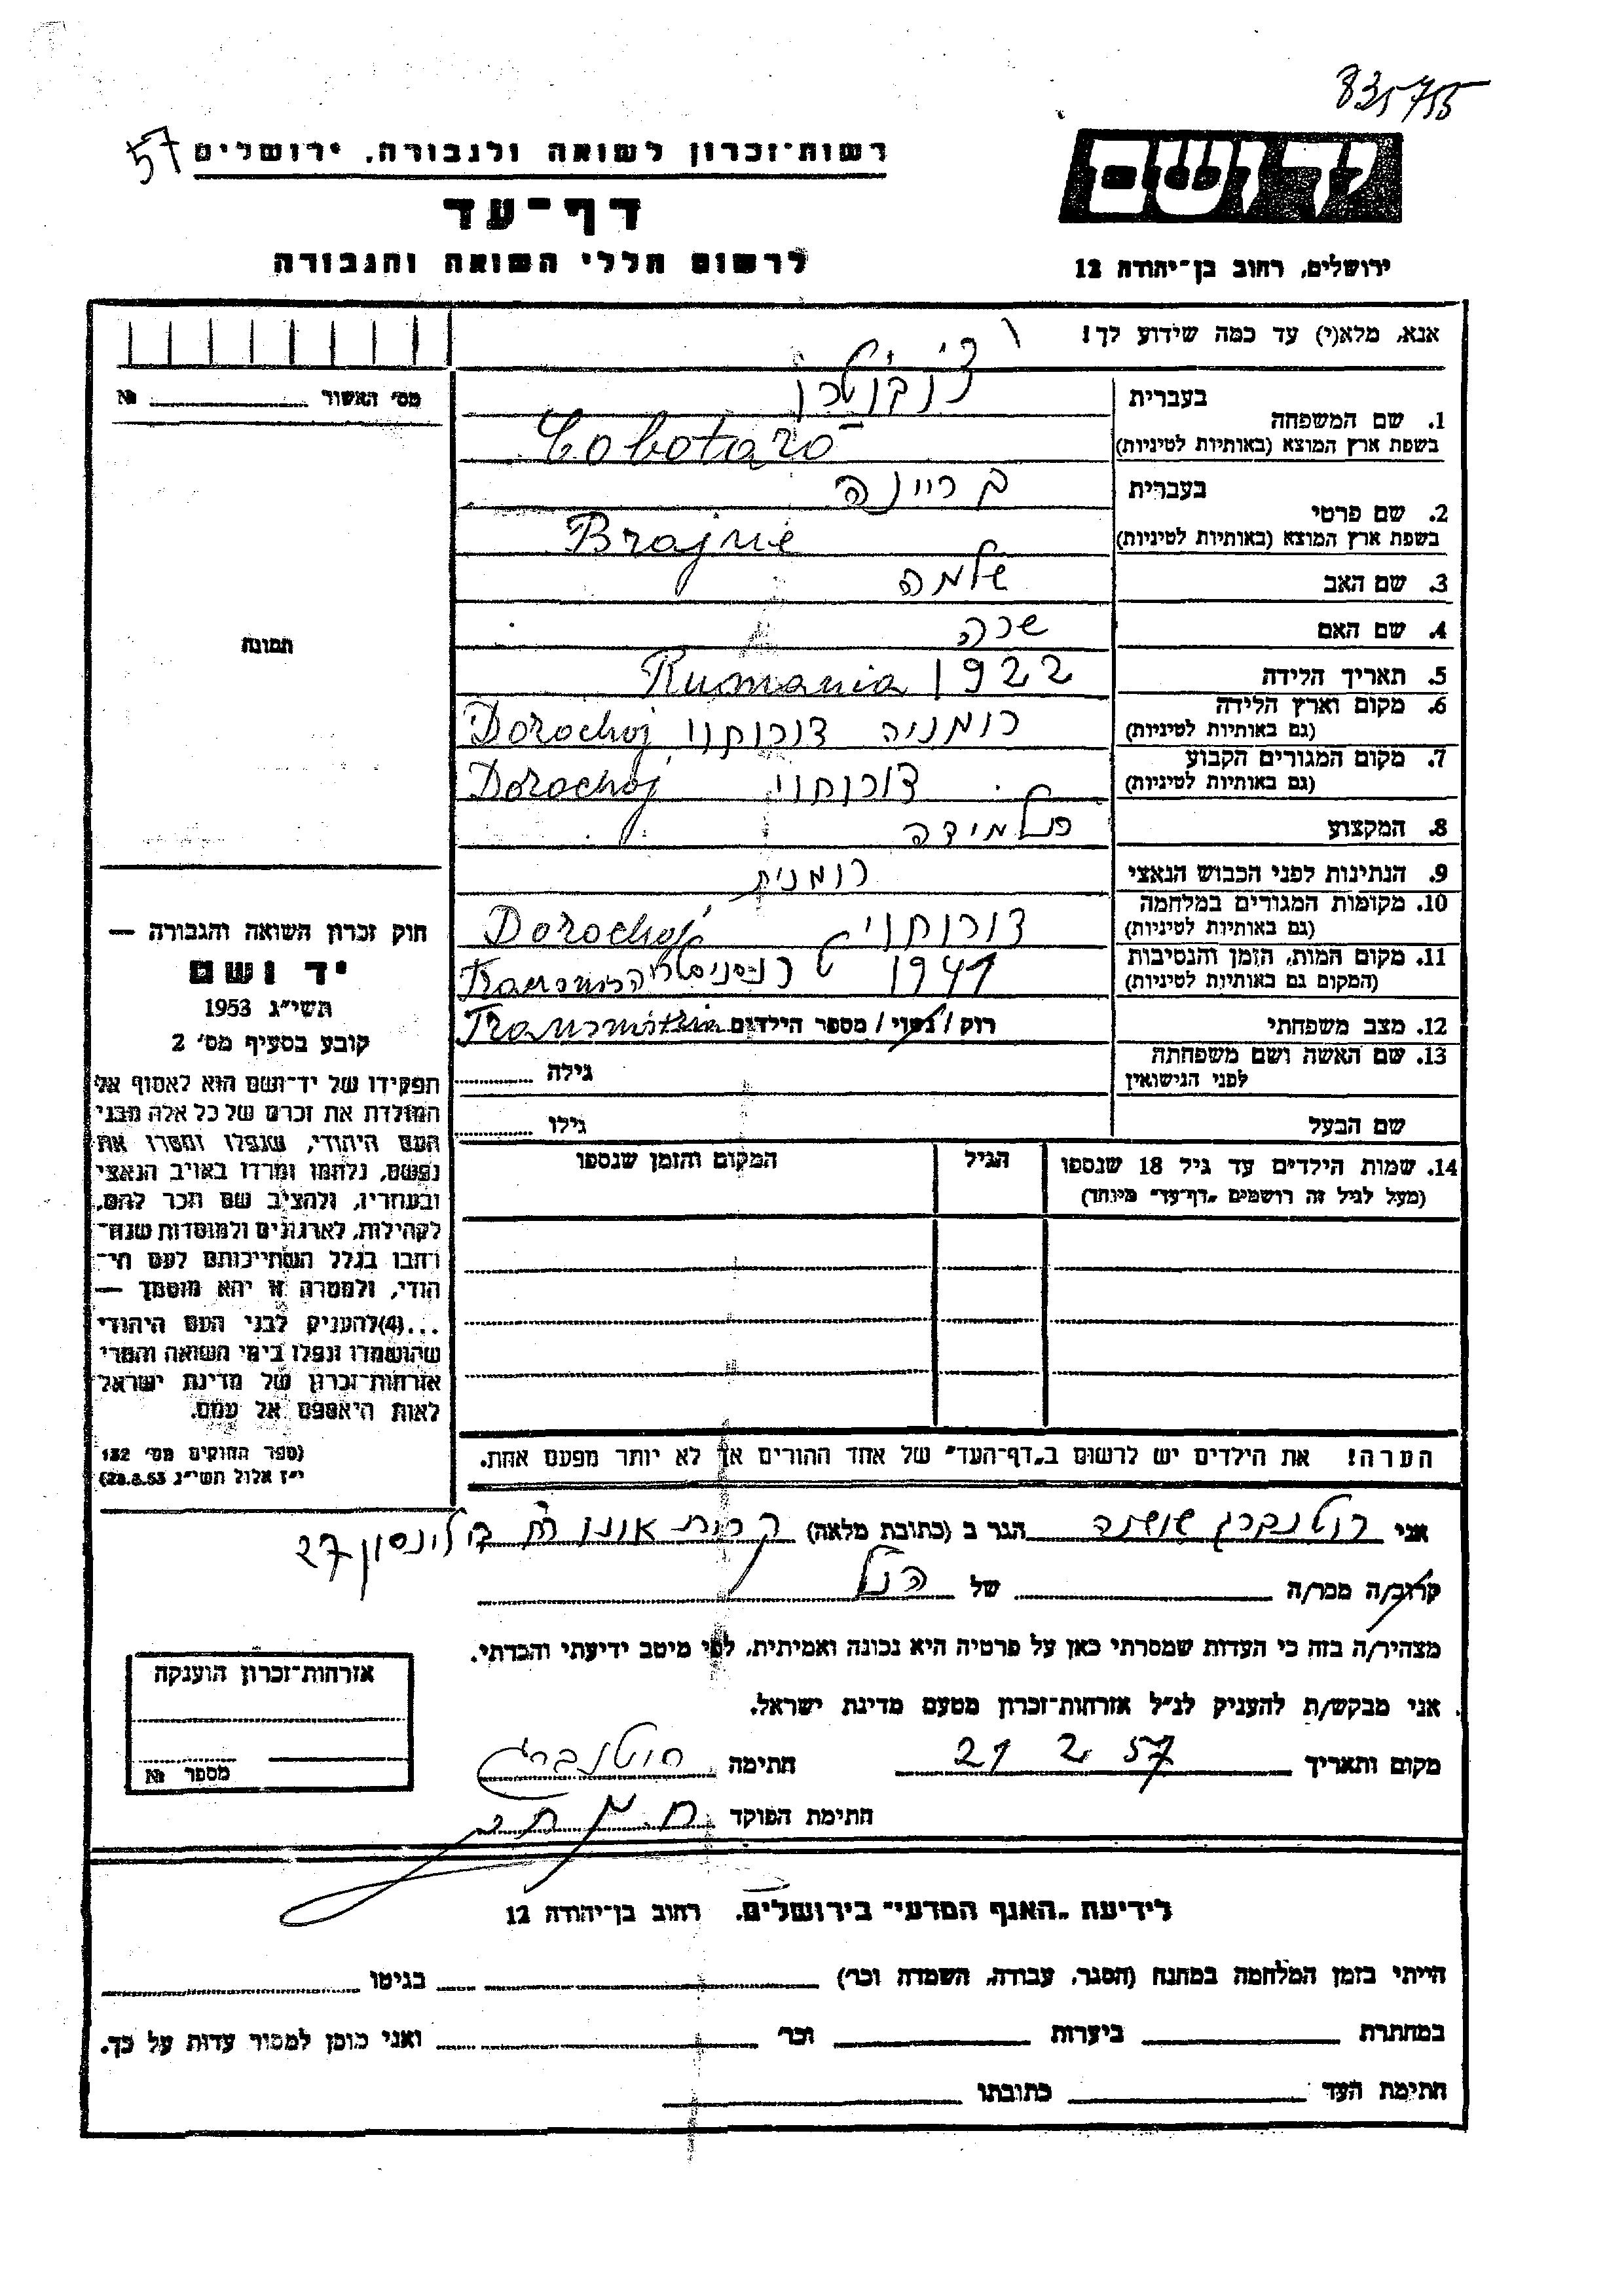 835755
57
רשות־זכרון לשואה ולגבורה, ירושלים
יד ושם
דף־עד
לרשום חללי השואה והגבורה
ירושלים, רחוב בן־יהודה 12
אנא, מלא(י) עד כמה שידוע לך!
מס' האשור №
1. שם המשפחה
בעברית
בשפת ארץ המוצא (באותיות לטיניות)
Cobotaro
2. שם פרטי
בעברית בריינה
בשפת ארץ המוצא (באותיות לטיניות) Brajne
3. שם האב שלמה
4. שם האם שרה
תמונה
5. תאריך הלידה 1922 Rumania
6. מקום וארץ הלידה רומניה דורוחוי Dorochoj
(גם באותיות לטיניות)
7. מקום המגורים הקבוע דורוחוי Dorochoj
(גם באותיות לטיניות)
8. המקצוע תלמידה
9. הנתינות לפני הכבוש הנאצי רומנית
10. מקומות המגורים במלחמה דורוחוי Dorochoj
(גם באותיות לטיניות)
11. מקום המות, הזמן והנסיבות 1941 טרנסניסטריה
(המקום גם באותיות לטיניות)
12. מצב משפחתי רוק / נשוי / מספר הילדים
13. שם האשה ושם משפחתה גילה
לפני הנישואין
שם הבעל גילו
14. שמות הילדים עד גיל 18 שנספו הגיל המקום והזמן שנספו
(מעל לגיל זה רושמים „דף־עד" מיוחד)
הערה! את הילדים יש לרשום ב„דף־העד" של אחד ההורים אך לא יותר מפעם אחת.
חוק זכרון השואה והגבורה —
יד ושם
תשי"ג 1953
קובע בסעיף מס' 2
תפקידו של יד־ושם הוא לאסוף אל
המולדת את זכרם של כל אלה מבני
העם היהודי, שנפלו ומסרו את
נפשם, נלחמו ומרדו באויב הנאצי
ובעוזריו, ולהציב שם וזכר להם,
לקהילות, לארגונים ולמוסדות שנח־
רבו בגלל השתייכותם לעם הי־
הודי, ולמטרה זו יהא מוסמך —
...(4)להעניק לבני העם היהודי
שהושמדו ונפלו בימי השואה והמרי
אזרחות־זכרון של מדינת ישראל
לאות היאספם אל עמם.
(ספר החוקים מס' 132
י"ז אלול תשי"ג 28.8.53)
אני רוטנברג שושנה הגר ב (כתובת מלאה) קרית אונו רח בילינסון 27
קרוב/ה מכר/ה של הנ"ל
מצהיר/ה בזה כי העדות שמסרתי כאן על פרטיה היא נכונה ואמיתית, לפי מיטב ידיעתי והכרתי.
אני מבקש/ת להעניק לנ"ל אזרחות־זכרון מטעם מדינת ישראל.
מקום ותאריך 21 2 57 חתימה רוטנברג
חתימת הפוקד
אזרחות־זכרון הוענקה
מספר №
לידיעת „האגף המדעי" בירושלים, רחוב בן־יהודה 12
הייתי בזמן המלחמה במחנה (הסגר, עבודה, השמדה וכר') בגיטו
במחתרת ביערות וכר' ואני מוכן למסור עדות על כך.
חתימת העד כתובתו